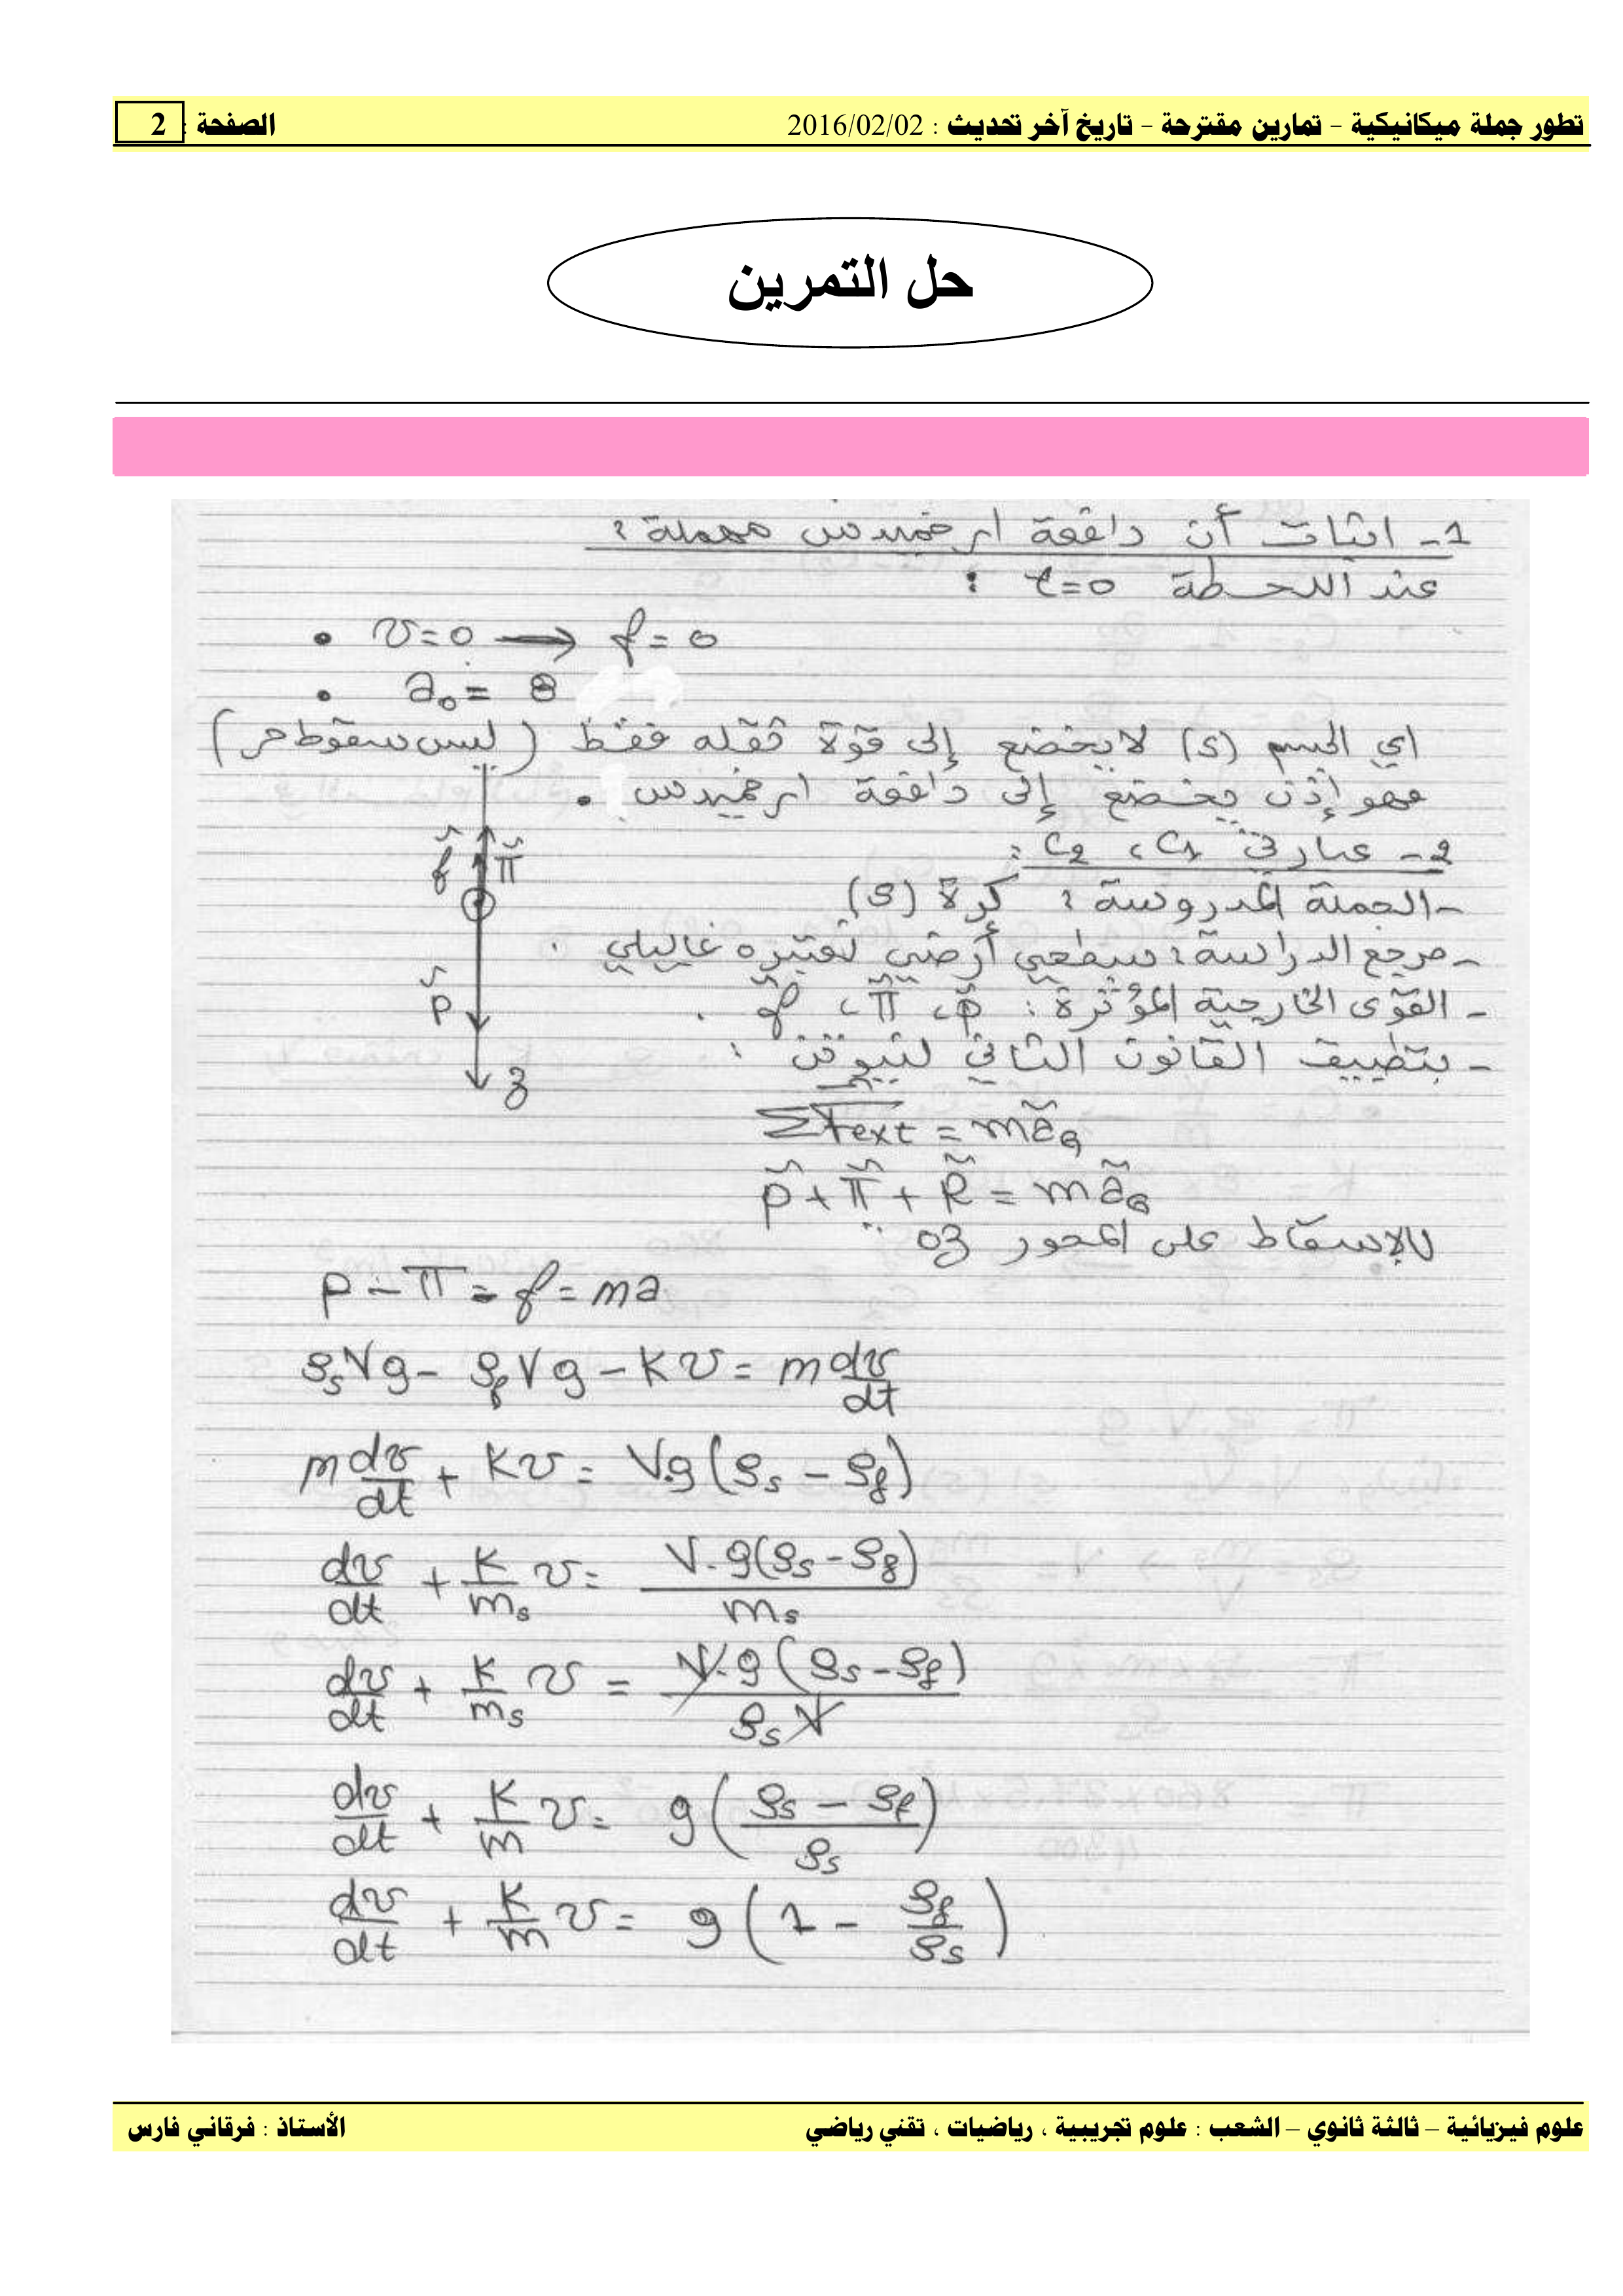 تطور جملة ميكانيكية - تمارين مقترحة - تاريخ آخر تحديث : 2016/02/02 الصفحة : 2
حل التمرين
1- اثبات أن دافعة ارخميدس مهملة :
عند اللحظة t=0 :
• v=0 → f=0
• a₀= 8
اي الجسم (S) لا يخضع إلى قوة ثقله فقط (ليس سقوط حر)
فهو إذن يخضع إلى دافعة ارخميدس .
2- عبارتي C1 ، C2 :
- الجملة المدروسة : كرة (S)
- مرجع الدراسة : سطحي أرضي نعتبره غاليلي .
- القوى الخارجية المؤثرة : p⃗ ، π⃗ ، f⃗ .
- بتطبيق القانون الثاني لنيوتن :
f⃗ π⃗
p⃗
z
ΣF⃗ext = ma⃗G
p⃗ + π⃗ + R⃗ = ma⃗G
بالإسقاط على المحور oz
p - π - f = ma
ρsVg - ρfVg - Kv = m dv/dt
m dv/dt + Kv = V.g(ρs - ρf)
dv/dt + K/ms v = V.g(ρs - ρf)/ms
dv/dt + K/ms v = V.g(ρs - ρf)/ρsV
dv/dt + K/m v = g(ρs - ρf/ρs)
dv/dt + K/m v = g(1 - ρf/ρs)
علوم فيزيائية – ثالثة ثانوي – الشعب : علوم تجريبية ، رياضيات ، تقني رياضي الأستاذ : فرقاني فارس